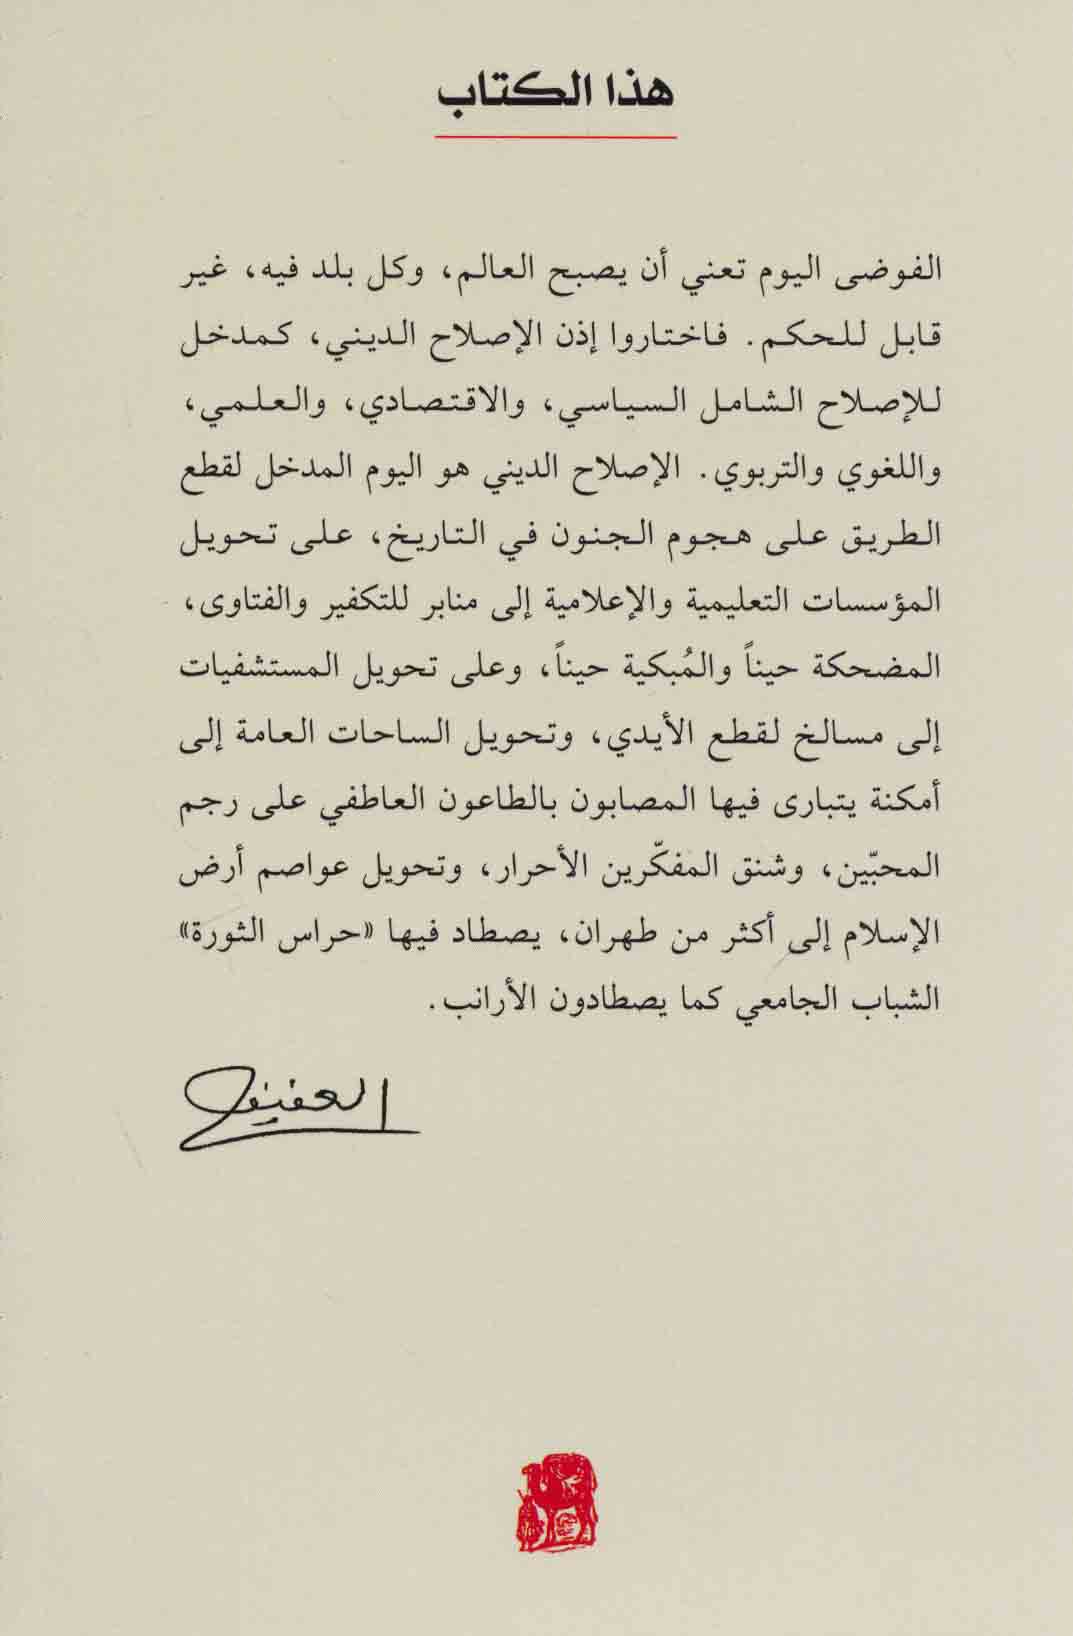 هذا الكتاب
الفوضى اليوم تعني أن يصبح العالم، وكل بلد فيه، غير
قابل للحكم. فاختاروا إذن الإصلاح الديني، كمدخل
للإصلاح الشامل السياسي، والاقتصادي، والعلمي،
واللغوي والتربوي. الإصلاح الديني هو اليوم المدخل لقطع
الطريق على هجوم الجنون في التاريخ، على تحويل
المؤسسات التعليمية والإعلامية إلى منابر للتكفير والفتاوى،
المضحكة حيناً والمُبكية حيناً، وعلى تحويل المستشفيات
إلى مسالخ لقطع الأيدي، وتحويل الساحات العامة إلى
أمكنة يتبارى فيها المصابون بالطاعون العاطفي على رجم
المحبّين، وشنق المفكّرين الأحرار، وتحويل عواصم أرض
الإسلام إلى أكثر من طهران، يصطاد فيها «حراس الثورة»
الشباب الجامعي كما يصطادون الأرانب.
العفيف